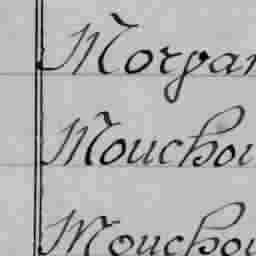 Morgan
Mouchou
Mouchou